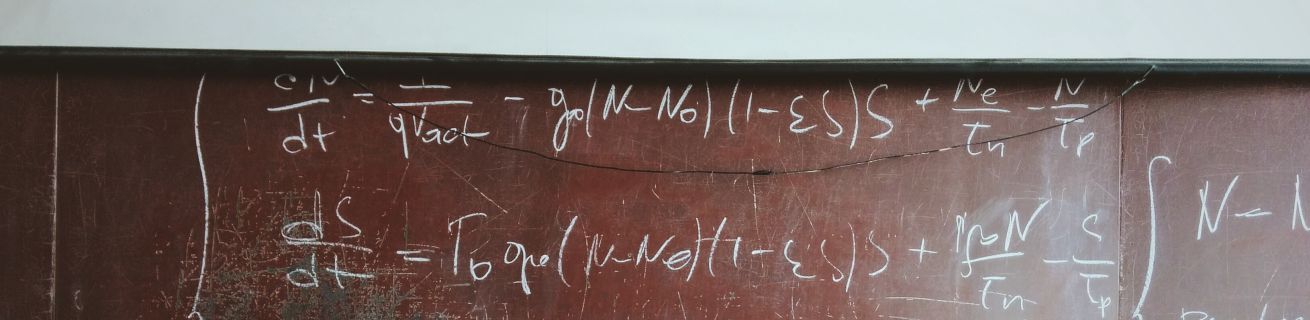 dN/dt = I/qVact - g₀(N-N₀)(1-εS)S + Ne/τn - N/τp
dS/dt = Γ₀g₀(N-N₀)(1-εS)S + N/τn - S/τp
N -